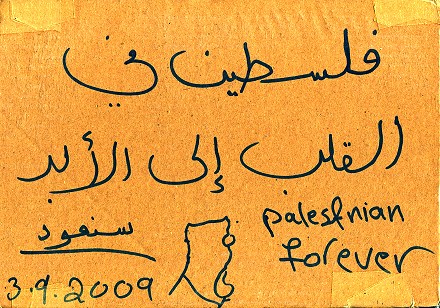 فلسطين في
القلب إلى الأبد
سنعود
palestnian
forever
3.9.2009